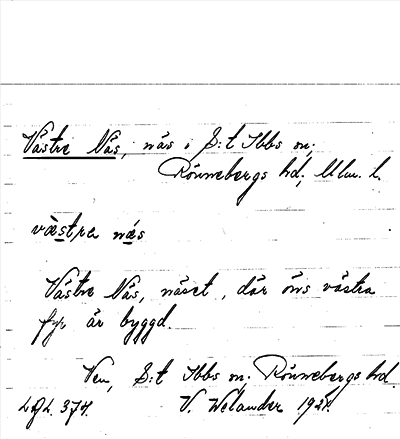 Västre Näs, näs i S:t Ibbs sn;
Rönnebergs hd, Mlm. l.
væstra næs
Västre Näs, näset, där öns västra
fyr är byggd.
Ven, S:t Ibbs sn, Rönnebergs hd.
V. Welander 1921.